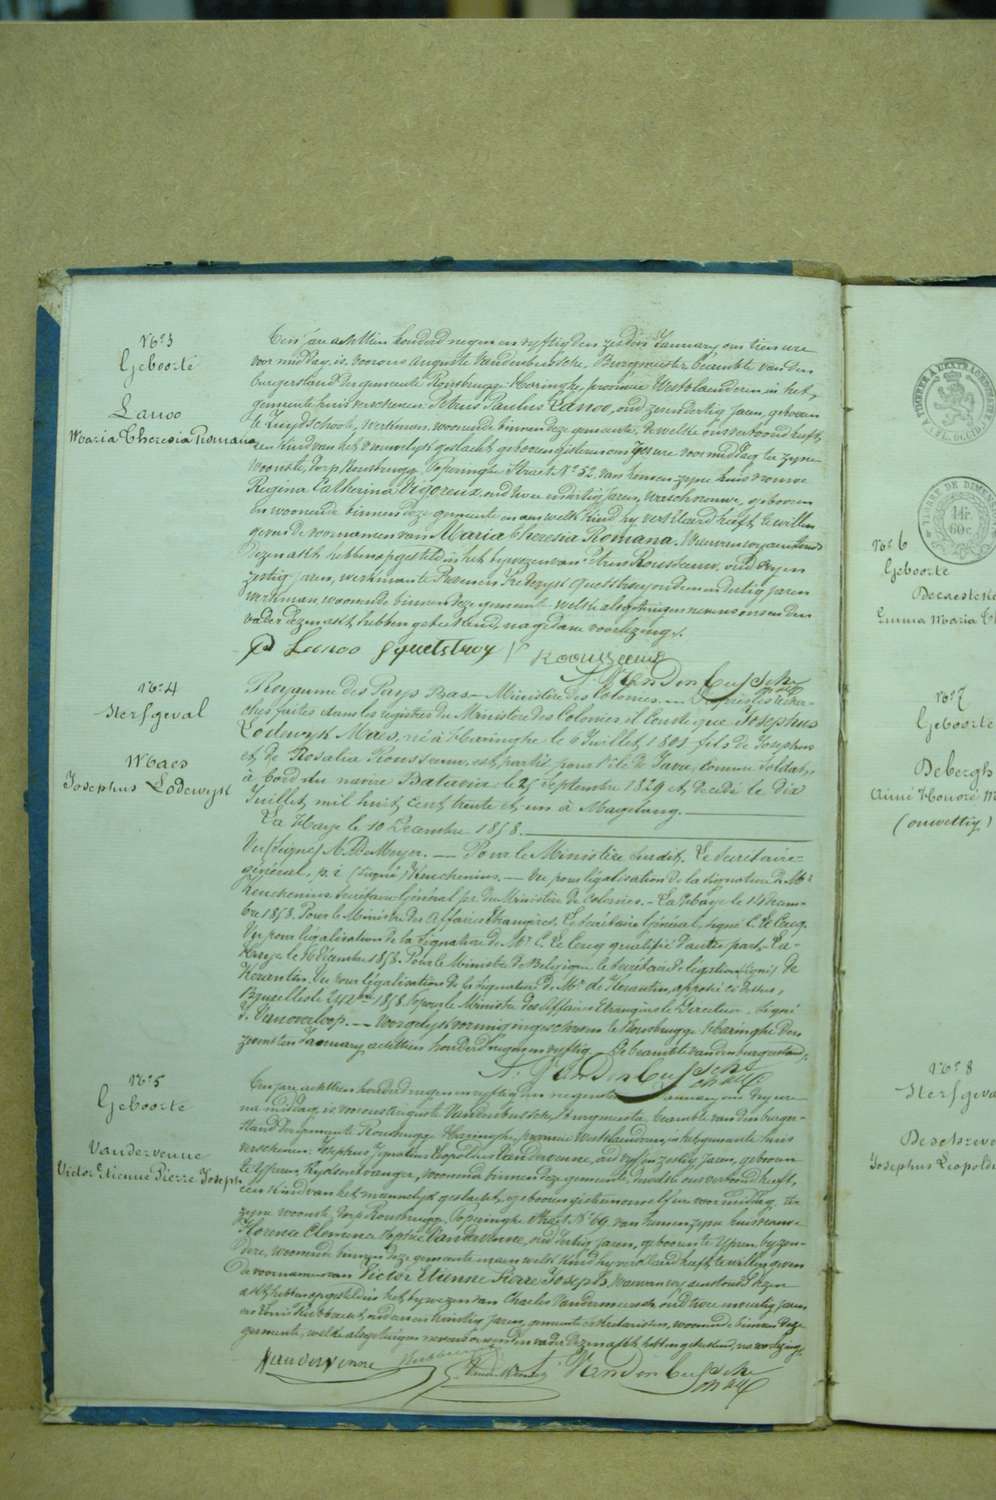 N° 3
Geboorte
Lanoo
Maria Theresia Romana
Een jaar achttien honderd negen en vyftig den zesden January om tien ure
voor middag, is voor ons Auguste Vandenbussche, Burgmeester, beambte van den
burgerstand der gemeente Rousbrugge-Haringhe, provincie Westvlaanderen, in het
gemeente huis verschenen Petrus Paulus Lanoo, oud dertig jaren, geboren
te Zuydschoote, werkman, woonende binnen deze gemeente, de welke ons vertoond heeft,
een kind van het vrouwelyk geslacht, geboren gisteren om ure voor middag ter zyne
woonste, dorp Rousbrugge, Poperinghe Straet N° 52, van hem en zyne huisvrouw
Regina Catherina Vigoreux, oud twee en dertig jaren, geboren
en woonende binnen deze gemeente en aan welk kind hy verklaard heeft te willen
geven de voornamen van Maria Theresia Romana. Waervan wy aenstonds
dezen akt hebben opgesteld in het bywezen van Petrus Rousseeuw, oud
zestig jaren, werkman en Quetstroy, oud en dertig jaren
werkman, woonende binnen deze gemeente welke als getuigen nevens ons en den
vader dezen akt hebben geteekend, na gedane voorlezing.
P Lanoo Quetstroy P Roousseeuw
A. Vandenbussche
N° 4
Sterfgeval
Maes
Josephus Lodewyk
Royaume des Pays Bas. — Ministère des Colonies. — D'après les recher-
ches faites dans les registres du Ministère des Colonies il conste que Josephus
Lodewyk Maes, né à Haringhe le 6 Juillet 1801 fils de Josephus
et de Rosalia Rousseeuw, est parti pour l'île de Java, comme soldat,
à bord du navire Batavia le 25 Septembre 1829 et décédé le dix
Juillet, mil huit cent trente et un à Magelang. —
La Haye le 10 Decembre 1858. —
Vu (signé) A. De Meyer. — Pour le Ministère susdit, Le Secrétaire-
général, p. i. (signé) Keuchenius. — Vu pour légalisation de la signature de Mr
Keuchenius Secrétaire Général p.i. du Ministère de Colonies. — La Haye le 14 Decem-
bre 1858. Pour le Ministre des Affaires Etrangères, Le Secrétaire Général, signé C. Le Cocq.
Vu pour légalisation de la signature de Mr. C. Le Cocq qualifié d'autre part, La
Haye le 16 Décembre 1858. Pour le Ministre de Belgique le Secrétaire de légation (signé) De
Kerantin. Vu pour légalisation de la signature de Mr. de Kerantin, apposée ci dessus,
Bruxelles le 24 Xbre 1858. pour le Ministre des Affaires Etrangères le Directeur, signé
Vanoverloop. — Voor gelykvormig ingeschreven te Rousbrugge-Haringhe den
January achttien honderd negen en vyftig. De beambte van den burgerstand,
A. Vandenbussche
N° 5
Geboorte
Vandervenne
Victor Etienne Pierre Joseph
Een jare achttien honderd negen en vyftig den January, om dry ure
na middag, is voor ons Auguste Vandenbussche, Burgmeester, beambte van den burger-
stand der gemeente Rousbrugge-Haringhe, provincie Westvlaanderen, in het gemeente huis
verschenen Josephus Ignatius Leopoldus Vandervenne, oud vyf en zestig jaren, geboren
te Yperen, Rydsontvanger, woonende binnen deze gemeente, de welke ons vertoond heeft,
een kind van het mannelyk geslacht, geboren gisteren om elf ure voor middag, ter
zyne woonste, dorp Rousbrugge, Poperinghe Straet N° 69, van hem en zyne huisvrouw
Florence Clemence Sophie Vandervenne, oud dertig jaren, geboren te Yperen, byzon-
dere, woonende binnen deze gemeente en aen welk kind hy verklaard heeft te willen geven
de voornamen van Victor Etienne Pierre Joseph, waervan wy aenstonds dezen
akt hebben opgesteld in het bywezen van Charles Vandermeersch oud twee en veertig jaren
en oud en twintig jaren, gemeente sekretarissen, woonende binnen deze
gemeente, welke als getuigen nevens ons en den vader dezen akt hebben geteekend, na voorlezing.
Vandervenne
A. Vandenbussche
TIMBRE A L'EXTRAORDINAIRE
FL. OCCID.
TIMBRE DE DIMENSION
1 fr
60 c.
N° 6
Geboorte
N° 7
Geboorte
Debergh
Aimé Honoré M
(onwettig)
N° 8
Sterfgeva
Deschrev
Josephus Leopold